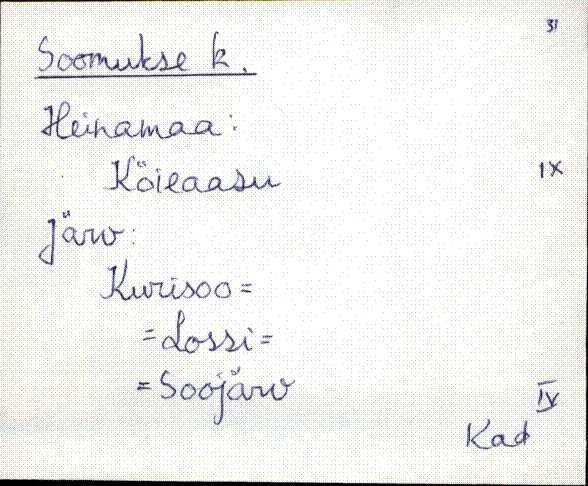 31
Soomukse k.
Heinamaa:
Köieaasu IX
Järv:
Kurisoo=
=Lossi=
=Soojärv
IV
Kad